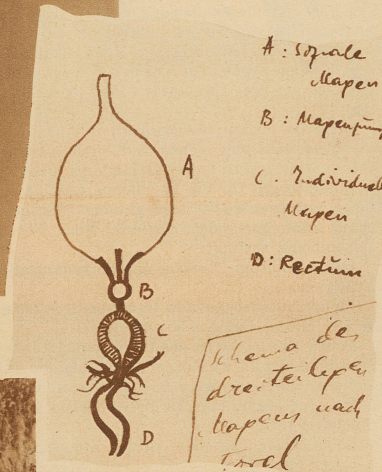 A
B
C
D
A: Soziale
Magen
B: Magenpum
C. Individuel
Magen
D: Rectum
Schema des
dreiteiligen
Magens nach
Forel